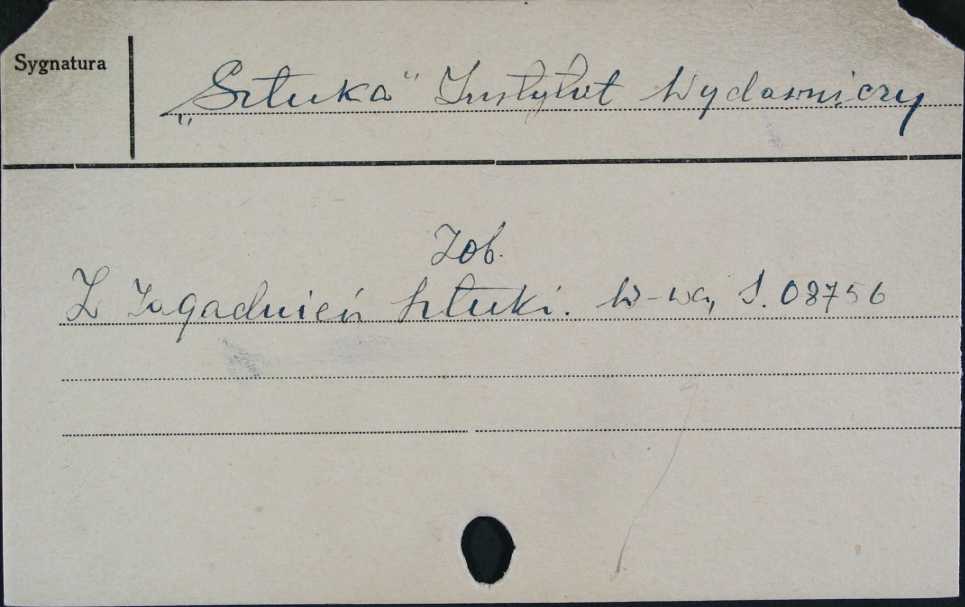 Sygnatura
„Sztuka" Instytut Wydawniczy
Zob.
Z Zagadnień Sztuki. W-wa, S. 08756